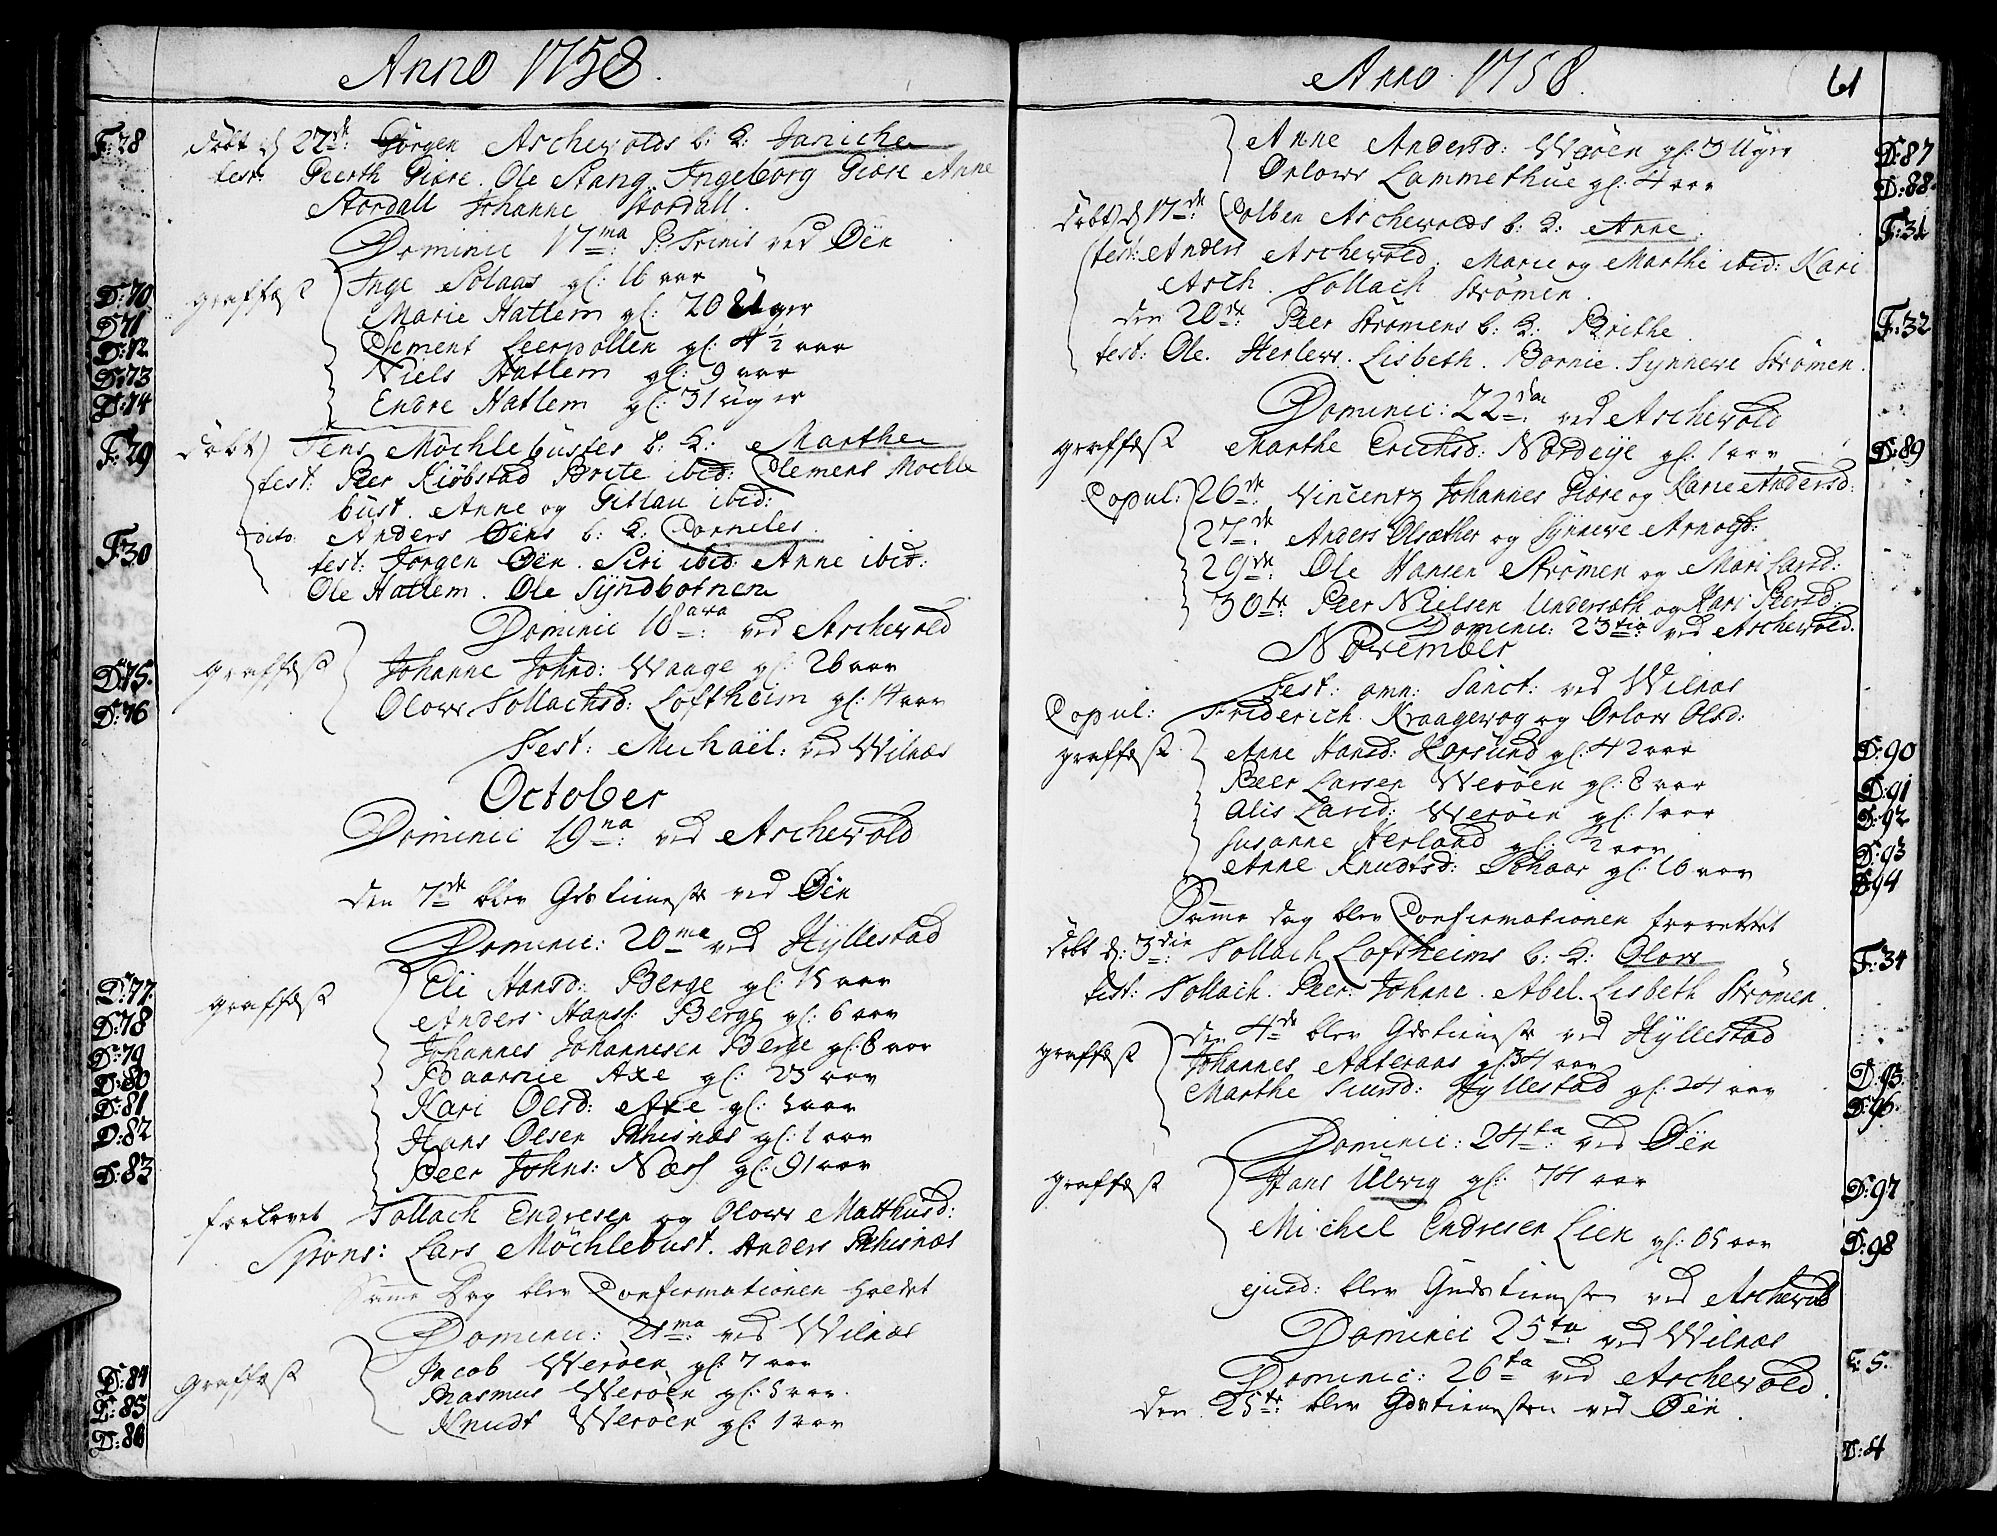 Anno 1758.
F:28 døbt d 22de: Jørgen Aschewolds b: k: Janiche
test: Geerth Giøre. Ole Stang. Ingeborg Giøre Anne
Stordall Johanne Stordall.
Dominic 17ma: P: Trinit ved Øen
D:70 graffæst Inge Solaas gl: 16 aar
D:71 Marie Hatlem gl: 20 Uger
D:72 Clement Leerpollen gl: 4½ aar
D:73 Niels Hatlem gl: 9 aar
D:74 Endre Hatlem gl: 31 uger
F:29 døbt Jens Möchlebustes b: k: Marthe
test: Peer Kiöbstad Brite ibid: Clemens Mochle
büst. Anne og Gitlau ibid:
F:30 dito Anders Øens b: k: Corneles.
test: Jorgen Øen. Siri ibid: Anne ibid:
Ole Hatlem. Ole Syndbotnen
Dominic 18ava: ved Aschewold
D:75. graffæst Johanne Johnd: Waage gl: 26 aar
D:76 Olow Tollachsd: Loftheim gl: 14 aar
Fest: Michaël: ved Wilnæs
October
Dominic 19na: ved Aschewold
den 7de blev Gdstienest ved Øen
Dominic: 20ma ved Hyllestad
D:77. graffæst Eli Hansd: Berge gl: 15 aar
D:78 Anders Hans: Berge gl: 6 aar
D:79 Johannes Johannesen Berge gl: 8 aar
D:80 Baarnie Axe gl: 25 aar
D:81 Kari Olsd: Axe gl: 5 aar
D:82 Hans Olsen Risnæs gl: 1 aar
D:83 Peer Johns: Næss gl: 91 aar
forlovet Tollach Endresen og Olow Matthisd:
Spons: Lars Möchlebust. Anders Risnæs
Samme Dag blev Confirmationen holdet
Dominic: 21ma: ved Wilnæs
D:84 Graffæst Jacob Werøen gl: 7 aar
D:85 Rasmus Werøen gl: 5 aar.
D:86 Knudt Werøen gl: 1 aar
Anno 1758. 61
Anne Andersd: Werøen gl: 3 Uger D:87
Orlow Lammethue gl: 4 aar D:88
døbt d 17de: Colben Aschewolds b: k: Anne. F:31
test: Anders Aschewold. Marie og Marthe ibid: Kari
Asch. Tollach Strømen.
den 20de: Peer Strømens b: k: Brithe F:32
test: Ole. Herlew. Lisbeth. Bornie. Synneve Strømen.
Dominic: 22da: ved Aschewold
graffæst Marthe Erichsd: Nordeye gl: 1 aar D:89
Copul: 26de: Vincentz Johannes Giøre og Karie Andersd:
27de: Anders Olsæther og Synneve Arnesd:
29de: Ole Hansen Strømen og Mari Larsd:
30te: Peer Nielsen Undersæth og Kari Peersd.
Dominic: 23tia: ved Aschewold.
November
Fest: omn: Sanct: ved Wilnæs
Copul: Friderich Kraagewog og Orlow Olsd:
graffæst Anne Hansd: Korsund gl: 42 aar D:90
Peer Larsen Werøen gl: 8 aar D:91
Alis Larsd: Werøen gl: 1 aar D:92
Susanne Herland gl: ½ aar D:93
Anne Knudtsd: Schaar gl: 16 aar D:94
Samme dag blev Confirmationen forrettet
døbt d: 3die: Tollach Loftheims b: k: Olow F:34
test: Tollach. Peer. Johane. Abel. Lisbeth Strømen.
den 4de blev Gdstienest ved Hyllestad
graffæst Johannes Aateraas gl: 34 aar D:95.
Marthe Siursd: Hyllestad gl: 24 aar D:96.
Dominic: 24ta: ved Øen
graffæst Hans Ulvig gl: 74 aar D:97
Michel Endresen Lien gl: 65 aar D:98
ejusd: blev Gudstienesten ved Aschewold
Dominic 25ta: ved Wilnæs
Dominic: 26ta ved Aschewold. C: 5.
den 25te: blev Gdstienesten ved Øen.
D:4